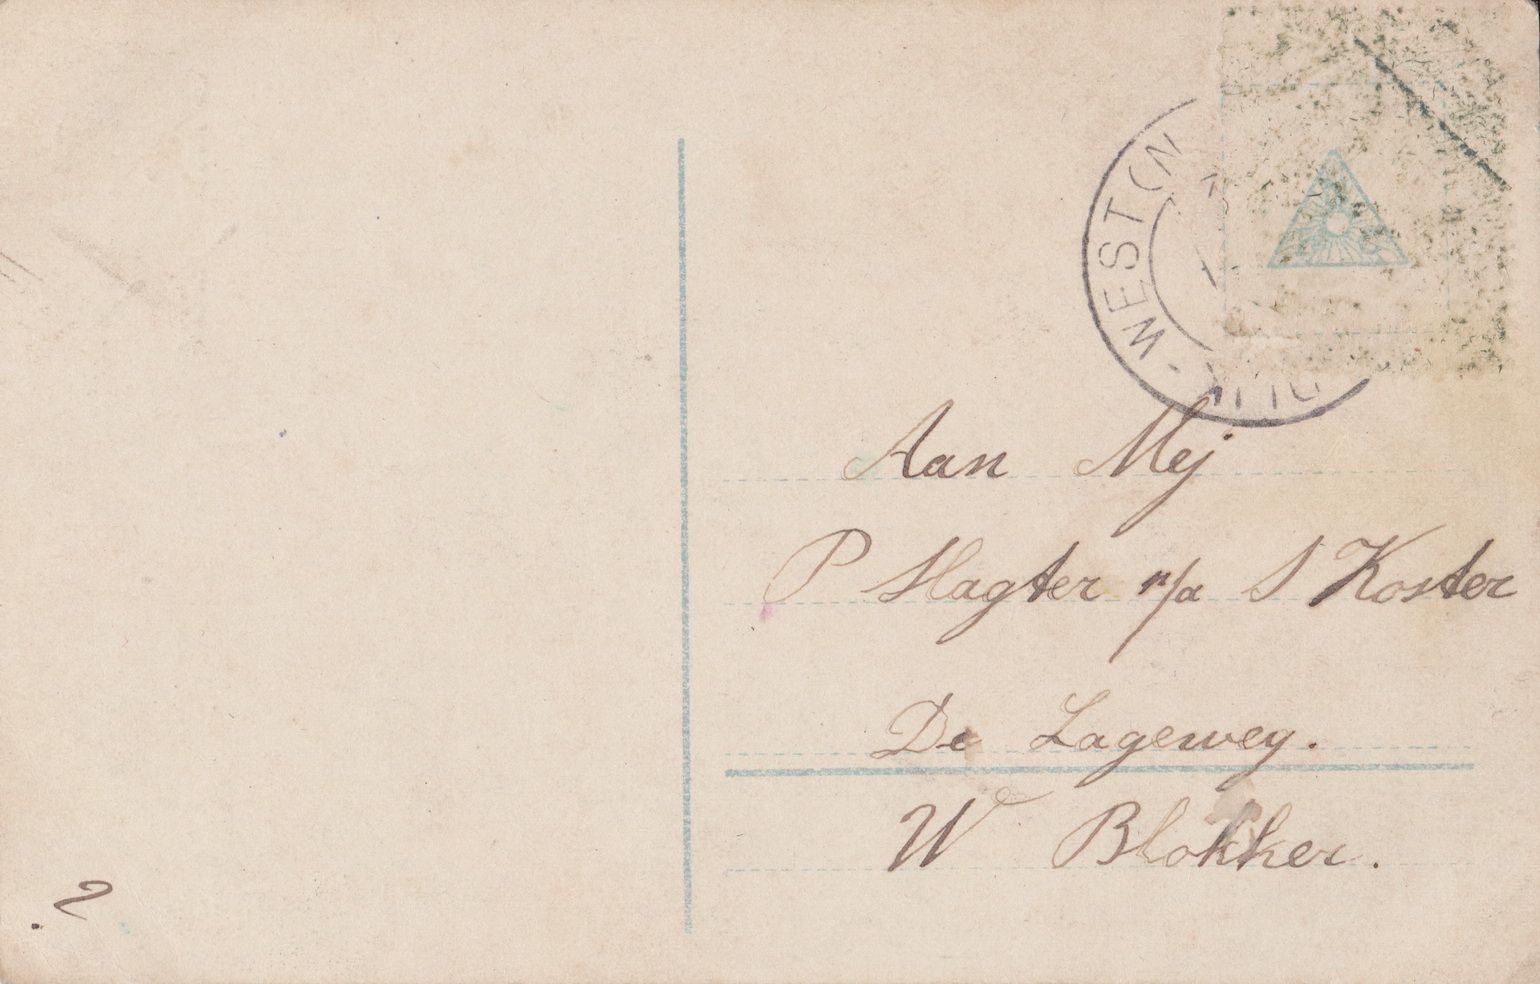 WESTW
DIJK
Aan Mej
P Slagter p/a S Koster
De Lageweg.
W Blokker.
2